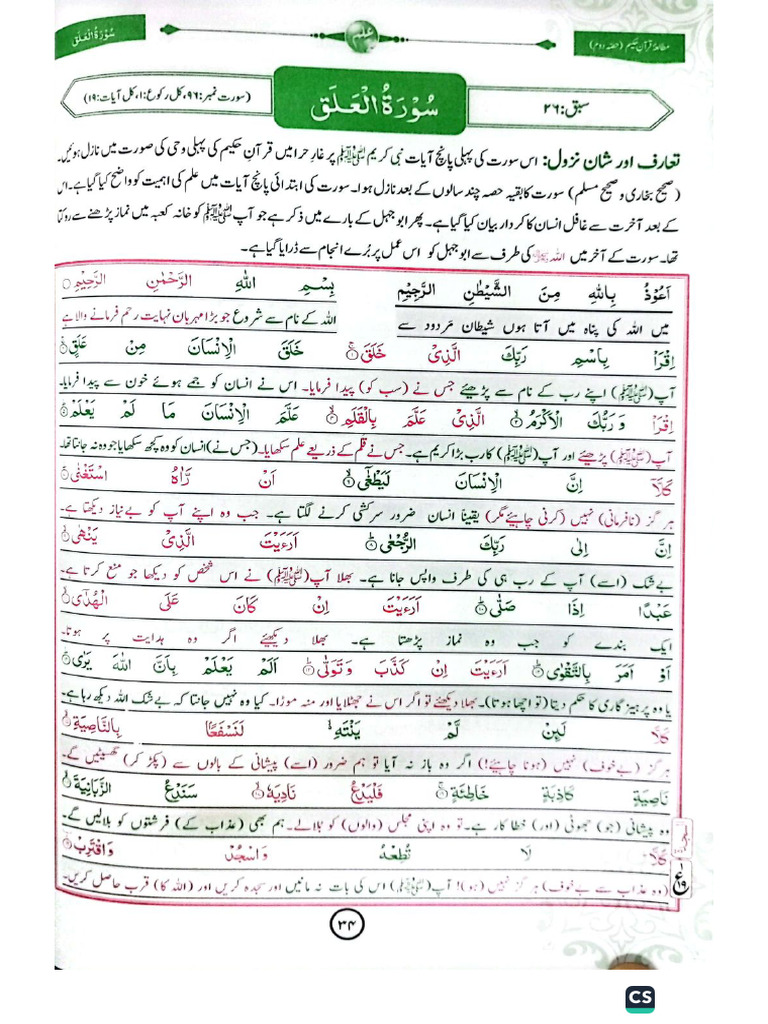 مطالعۂ قرآن حکیم (حصّہ دوم)
علم
سُوْرَۃُ الْعَلَق
سبق: ۲۶
سُوْرَۃُ الْعَلَقِ
(سورت نمبر: ۹۶، کل رکوع: ۱، کل آیات: ۱۹)
تعارف اور شان نزول: اس سورت کی پہلی پانچ آیات نبی کریم ﷺ پر غارِ حرا میں قرآنِ حکیم کی پہلی وحی کی صورت میں نازل ہوئیں۔
(صحیح بخاری و صحیح مسلم) سورت کا بقیہ حصہ چند سالوں کے بعد نازل ہوا۔ سورت کی ابتدائی پانچ آیات میں علم کی اہمیت کو واضح کیا گیا ہے۔ اس
کے بعد آخرت سے غافل انسان کا کردار بیان کیا گیا ہے۔ پھر ابو جہل کے بارے میں ذکر ہے جو آپ ﷺ کو خانہ کعبہ میں نماز پڑھنے سے روکتا
تھا۔ سورت کے آخر میں اللہ کی طرف سے ابو جہل کو اس عمل پر بُرے انجام سے ڈرایا گیا ہے۔
اَعُوْذُ بِاللّٰهِ مِنَ الشَّيْطٰنِ الرَّجِيْمِ بِسْمِ اللّٰهِ الرَّحْمٰنِ الرَّحِيْمِ
میں اللہ کی پناہ میں آتا ہوں شیطان مَردود سے اللہ کے نام سے شروع جو بڑا مہربان نہایت رحم فرمانے والا ہے
اِقْرَاْ بِاسْمِ رَبِّكَ الَّذِىْ خَلَقَ ۱ خَلَقَ الْاِنْسَانَ مِنْ عَلَقٍ ۲
آپ (ﷺ) اپنے رب کے نام سے پڑھیئے جس نے (سب کو) پیدا فرمایا۔ اس نے انسان کو جمے ہوئے خون سے پیدا فرمایا۔
اِقْرَاْ وَ رَبُّكَ الْاَكْرَمُ ۳ الَّذِىْ عَلَّمَ بِالْقَلَمِ ۴ عَلَّمَ الْاِنْسَانَ مَا لَمْ يَعْلَمْ ۵
آپ (ﷺ) پڑھیئے اور آپ (ﷺ) کا رب بڑا کریم ہے۔ جس نے قلم کے ذریعے علم سکھایا۔ (جس نے) انسان کو وہ کچھ سکھایا جو وہ نہ جانتا تھا۔
كَلَّاۤ اِنَّ الْاِنْسَانَ لَيَطْغٰٓى ۶ اَنْ رَّاٰهُ اسْتَغْنٰى ۷
ہر گز (نافرمانی) نہیں (کرنی چاہیئے مگر) یقیناً انسان ضرور سرکشی کرنے لگتا ہے۔ جب وہ اپنے آپ کو بے نیاز دیکھتا ہے۔
اِنَّ اِلٰى رَبِّكَ الرُّجْعٰى ۸ اَرَءَيْتَ الَّذِىْ يَنْهٰى ۹
بے شک (اسے) آپ کے رب ہی کی طرف واپس جانا ہے۔ بھلا آپ (ﷺ) نے اس شخص کو دیکھا جو منع کرتا ہے۔
عَبْدًا اِذَا صَلّٰى ۱۰ اَرَءَيْتَ اِنْ كَانَ عَلَى الْهُدٰٓى ۱۱
ایک بندے کو جب وہ نماز پڑھتا ہے۔ بھلا دیکھیئے اگر وہ ہدایت پر ہوتا۔
اَوْ اَمَرَ بِالتَّقْوٰى ۱۲ اَرَءَيْتَ اِنْ كَذَّبَ وَ تَوَلّٰى ۱۳ اَلَمْ يَعْلَمْ بِاَنَّ اللّٰهَ يَرٰى ۱۴
یا وہ پرہیز گاری کا حکم دیتا (تو اچھا ہوتا)۔ بھلا دیکھئے تو اگر اس نے جھٹلایا اور منہ موڑا۔ کیا وہ نہیں جانتا کہ بے شک اللہ دیکھ رہا ہے۔
كَلَّا لَىِٕنْ لَّمْ يَنْتَهِ لَنَسْفَعًۢا بِالنَّاصِيَةِ ۱۵
ہرگز (بے خوف) نہیں (ہونا چاہیئے!) اگر وہ باز نہ آیا تو ہم ضرور (اسے) پیشانی کے بالوں سے (پکڑ کر) گھسیٹیں گے۔
نَاصِيَةٍ كَاذِبَةٍ خَاطِئَةٍ ۱۶ فَلْيَدْعُ نَادِيَهٗ ۱۷ سَنَدْعُ الزَّبَانِيَةَ ۱۸
وہ پیشانی (جو) جھوٹی (اور) خطا کار ہے۔ تو وہ اپنی مجلس (والوں) کو بلالے۔ ہم بھی (عذاب کے) فرشتوں کو بلالیں گے۔
كَلَّا لَا تُطِعْهُ وَ اسْجُدْ وَ اقْتَرِبْ ۱۹
(وہ عذاب سے بے خوف) ہر گز نہیں (ہو)! آپ (ﷺ) اس کی بات نہ مانیں اور سجدہ کریں اور (اللہ کا) قرب حاصل کریں۔
ع
۱۹
۳۴
CS